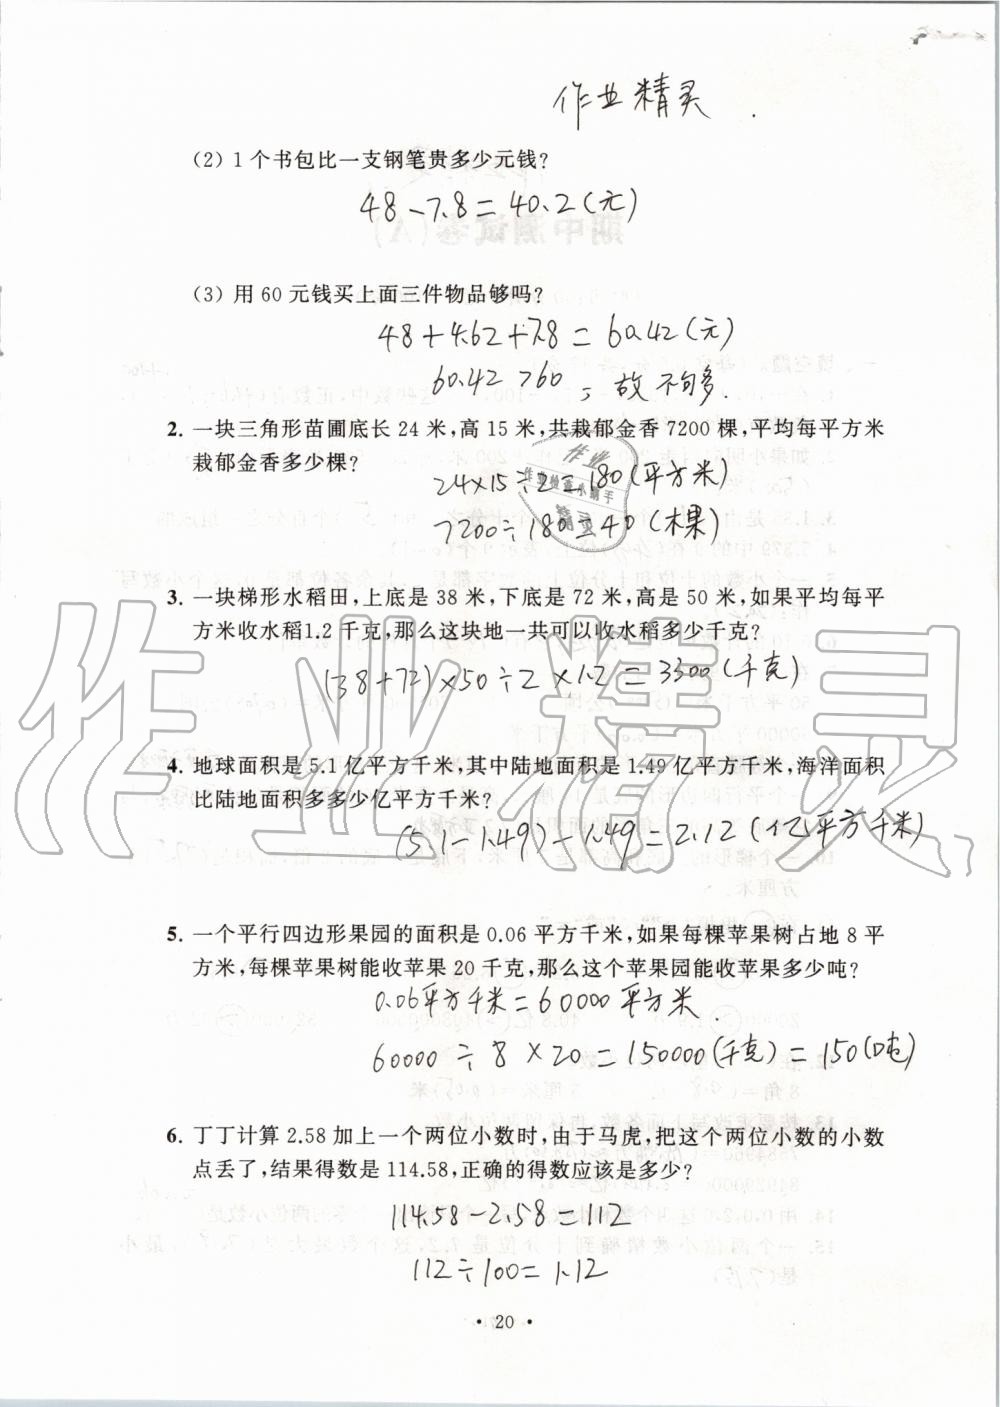 作业精灵
(2) 1个书包比一支钢笔贵多少元钱?
48-7.8=40.2(元)
(3) 用60元钱买上面三件物品够吗?
48+4.62+7.8=60.42(元)
60.42>60, 故不够.
2. 一块三角形苗圃底长24米,高15米,共栽郁金香7200棵,平均每平方米
栽郁金香多少棵?
24×15÷2=180(平方米)
7200÷180=40(棵)
3. 一块梯形水稻田,上底是38米,下底是72米,高是50米,如果平均每平
方米收水稻1.2千克,那么这块地一共可以收水稻多少千克?
(38+72)×50÷2×1.2=3300(千克)
4. 地球面积是5.1亿平方千米,其中陆地面积是1.49亿平方千米,海洋面积
比陆地面积多多少亿平方千米?
(5.1-1.49)-1.49=2.12(亿平方千米)
5. 一个平行四边形果园的面积是0.06平方千米,如果每棵苹果树占地8平
方米,每棵苹果树能收苹果20千克,那么这个苹果园能收苹果多少吨?
0.06平方千米=60000平方米.
60000÷8×20=150000(千克)=150(吨)
6. 丁丁计算2.58加上一个两位小数时,由于马虎,把这个两位小数的小数
点丢了,结果得数是114.58,正确的得数应该是多少?
114.58-2.58=112
112÷100=1.12
• 20 •
作业精灵